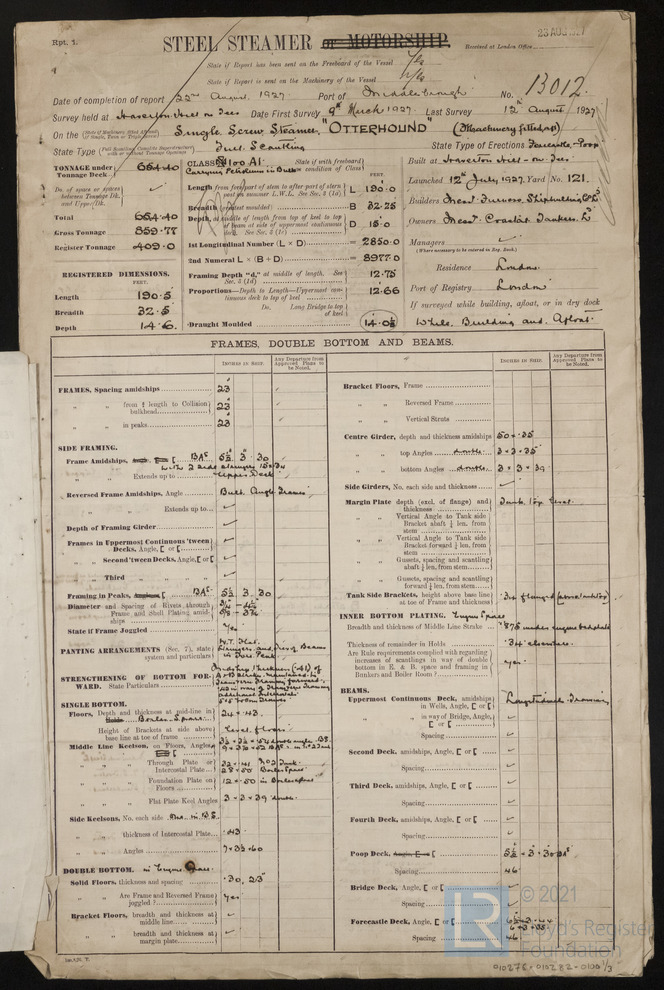 Rpt. 1.
STEEL STEAMER or MOTORSHIP.
23 AUG 1927
Received at London Office
State if Report has been sent on the Freeboard of the Vessel Yes
State if Report is sent on the Machinery of the Vessel Yes
Date of completion of report 22nd August, 1927 Port of Middlesbrough No. 13012.
Survey held at Haverton Hill on Tees Date First Survey 9th March 1927. Last Survey 12th August 1927
On the Single Screw Steamer "OTTERHOUND" (Machinery fitted aft)
State Type Full Scantling State Type of Erections Forecastle, Poop
TONNAGE under Tonnage Deck 664.40
Do. of space or spaces between Tonnage Dk. and Upper Dk.
Total 664.40
Gross Tonnage 859.77
Register Tonnage 409.0
REGISTERED DIMENSIONS.
FEET.
Length 190.5
Breadth 32.5
Depth 14.6
CLASS 100 A1 State if with freeboard
Carrying Petroleum in Bulk
FEET
Length from fore part of stem to after part of stern post on summer L.W.L. See Sec. 3 (1a) L 190.0
Breadth (greatest moulded) B 32.25
Depth, at middle of length from top of keel to top of beam at side of uppermost continuous deck. See Sec. 3 (1c) D 15.0
1st Longitudinal Number (L × D) = 2850.0
2nd Numeral L × (B + D) = 8977.0
Framing Depth "d," at middle of length. See Sec. 3 (1d) 12.75
Proportions—Depth to Length—Uppermost continuous deck to top of keel 12.66
Do. Long Bridge to top of keel
Draught Moulded 14.0½
Built at Haverton Hill-on-Tees
Launched 12th July 1927 Yard No. 121.
Builders Messrs Furness Shipbuilding Co Ld
Owners Messrs Coastal Tankers Ld
Managers
(Where necessary to be entered in Reg. Book.)
Residence London
Port of Registry London
If surveyed while building, afloat, or in dry dock
While Building and Afloat.
FRAMES, DOUBLE BOTTOM AND BEAMS.
INCHES IN SHIP.
Any Departure from Approved Plans to be Noted.
FRAMES, Spacing amidships 23
" " from ⅕ length to Collision bulkhead 23
" " in peaks 23
SIDE FRAMING.
Frame Amidships, BAs 5½ 3 .30
" " Extends up to Upper Deck
Reversed Frame Amidships, Angle Bulb Angle Frames
" " Extends up to
Depth of Framing Girder
Frames in Uppermost Continuous 'tween Decks, Angle, [ or [
" Second 'tween Decks, Angle, [ or [
" Third " " "
Framing in Peaks, Angle or [ BAs 5½ 3 .30
Diameter and Spacing of Rivets through Frame and Shell Plating amidships
State if Frame Joggled Yes
PANTING ARRANGEMENTS (Sec. 7), state system and particulars
STRENGTHENING OF BOTTOM FORWARD. State Particulars
SINGLE BOTTOM.
Floors, Depth and thickness at mid-line in Holds Boiler Space 24 × .43
Height of Brackets at side above base line at toe of frame Level floors
Middle Line Keelson, on Floors, Angles
" " Through Plate or Intercostal Plate
" " Foundation Plate on Floors 12 × .50 in Boiler space
" " Flat Plate Keel Angles 3 × 3 × .39 double
Side Keelsons, No. each side One in B.S.
" " thickness of Intercostal Plate .43
" " Angles
DOUBLE BOTTOM. in Engine Space.
Solid Floors, thickness and spacing .30, 23"
" " Are Frame and Reversed Frame joggled? Yes
Bracket Floors, breadth and thickness at middle line
" " breadth and thickness at margin plate
Bracket Floors, Frame
" " Reversed Frame
" " Vertical Struts
Centre Girder, depth and thickness amidships 50 × .35
" " top Angles double 3 × 3 × .35
" " bottom Angles double 3 × 3 × .39
Side Girders, No. each side and thickness
Margin Plate depth (excl. of flange) and thickness Tank top level
" " Vertical Angle to Tank side Bracket abaft ¼ len. from stem
" " Vertical Angle to Tank side Bracket forward ¼ len. from stem
" " Gussets, spacing and scantling abaft ¼ len. from stem
" " Gussets, spacing and scantling forward ¼ len. from stem
Tank Side Brackets, height above base line at toe of Frame and thickness .34 flanged (above tank top)
INNER BOTTOM PLATING. Engine Space
Breadth and thickness of Middle Line Strake .875 under engine bedplate
Thickness of remainder in Holds .34 elsewhere
Are Rule requirements complied with regarding increases of scantlings in way of double bottom in E. & B. space and framing in Bunkers and Boiler Room? Yes
BEAMS.
Uppermost Continuous Deck, amidships in Wells, Angle, [ or [ Longitudinal Framing
" " in way of Bridge, Angle, [ or [
Spacing
Second Deck, amidships, Angle, [ or [
Spacing
Third Deck, amidships, Angle, [ or [
Spacing
Fourth Deck, amidships, Angle, [ or [
Spacing
Poop Deck, Angle, [ or [ 5½ × 3 × .30 BAs
Spacing 46
Bridge Deck, Angle, [ or [
Spacing
Forecastle Deck, Angle, [ or [
Spacing 46
© 2021
Lloyd's Register
Foundation
010276-010282-0100 1/3